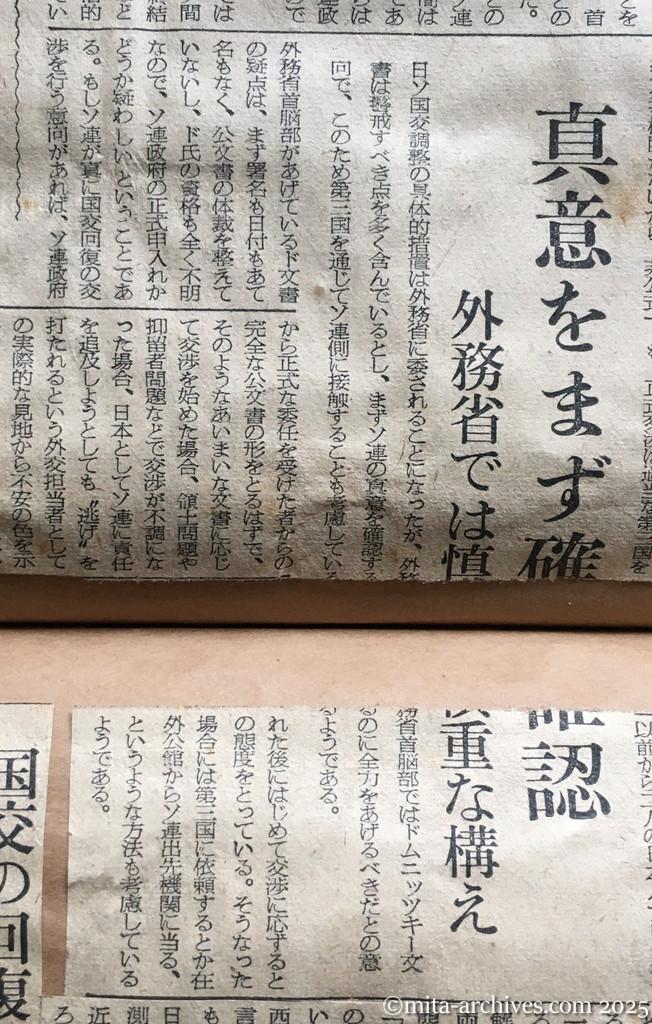 真意をまず確認
外務省では慎重な構え
日ソ国交調整の具体的措置は外務省に委されることになったが、外務省首脳部ではドムニッツキー文
書は警戒すべき点を多く含んでいるとし、まずソ連の真意を確認するのに全力をあげるべきだとの意
向で、このため第三国を通じてソ連側に接触することも考慮しているようである。
外務省首脳部があげているド文書
の疑点は、まず署名も日付もあて
名もなく、公文書の体裁を整えて
いないし、ド氏の資格も全く不明
なので、ソ連政府の正式申入れか
どうか疑わしいということであ
る。もしソ連が真に国交回復の交
渉を行う意向があれば、ソ連政府
から正式な委任を受けた者からの
完全な公文書の形をとるはずで、
そのようなあいまいな文書に応じ
て交渉を始めた場合、領土問題や
抑留者問題などで交渉が不調にな
った場合、日本としてソ連に責任
を追及しようとしても〝逃げ〟を
打たれるという外交担当者として
の実際的な見地から不安の色を示
れた後にはじめて交渉に応ずると
の態度をとっている。そうなった
場合には第三国に依頼するとか在
外公館からソ連出先機関に当る、
というような方法も考慮している
ようである。
国交の回復
©mita-archives.com 2025